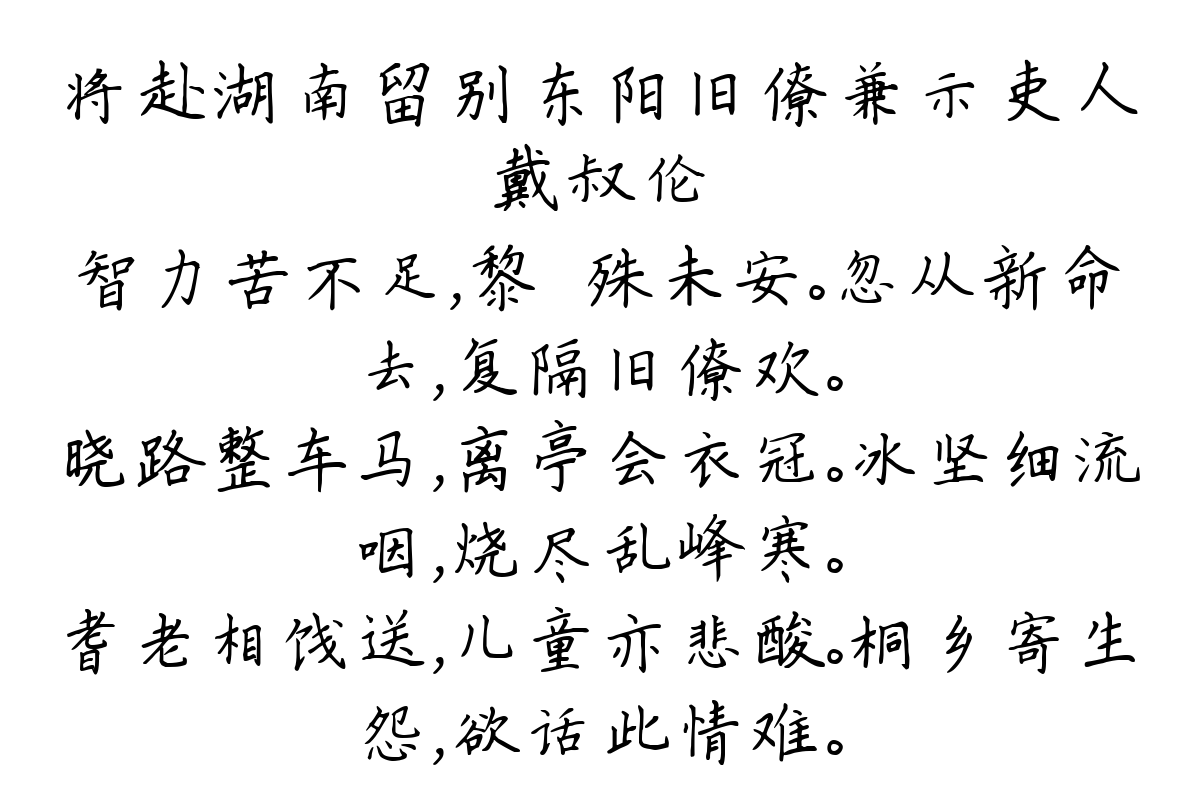 将赴湖南留别东阳旧僚兼示吏人
戴叔伦
智力苦不足,黎 殊未安。忽从新命
去,复隔旧僚欢。
晓路整车马,离亭会衣冠。冰坚细流
咽,烧尽乱峰寒。
耆老相饯送,儿童亦悲酸。桐乡寄生
怨,欲话此情难。